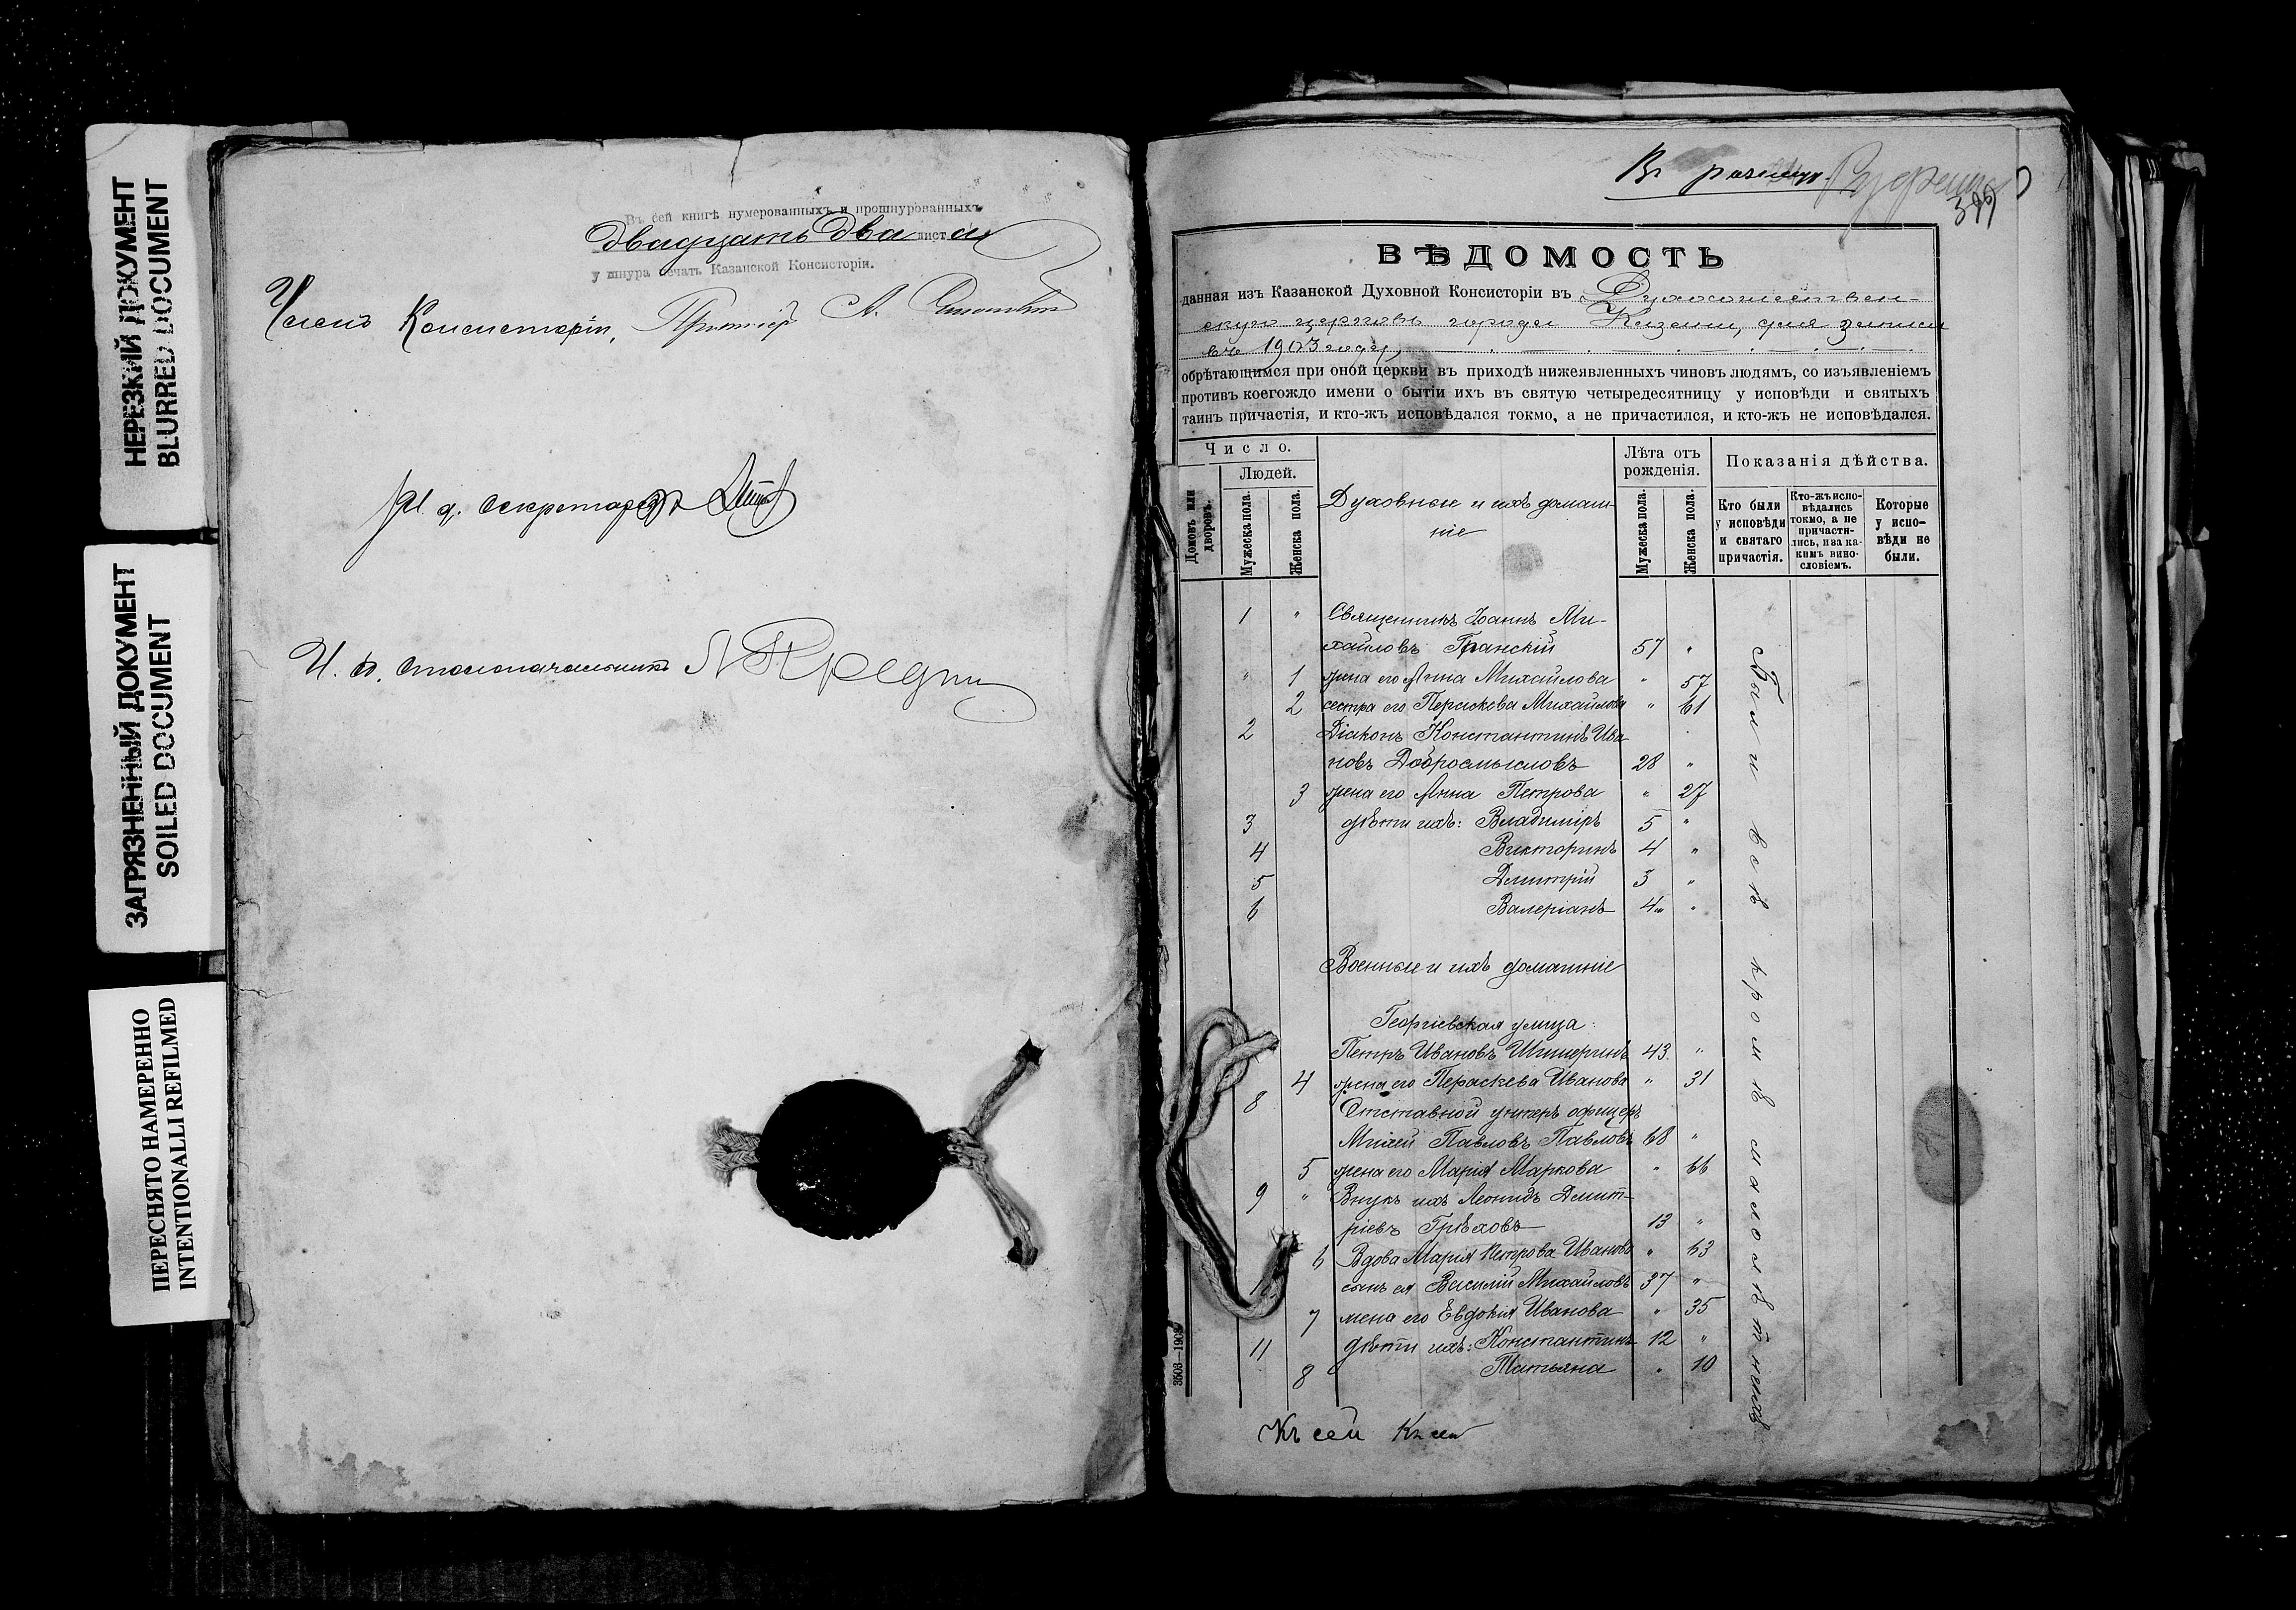 НЕРЕЗКИЙ ДОКУМЕНТ
BLURRED DOCUMENT
ЗАГРЯЗНЕННЫЙ ДОКУМЕНТ
SOILED DOCUMENT
ПЕРЕСНЯТО НАМЕРЕННО
INTENTIONALLI REFILMED
Въ сей книгѣ нумерованныхъ и прошнурованныхъ
двадцать два лист а
у шнура печать Казанской Консисторіи.
Членъ Консисторіи, А.
И. д. Секретаря
И. д. Столоначальника
Въ
ВѢДОМОСТЬ
данная изъ Казанской Духовной Консисторіи въ Духосошествен-
скую церковь города Казани, для записи
въ 1903 году,
обрѣтающимся при оной церкви въ приходѣ нижеявленныхъ чиновъ людямъ, со изъявленіемъ
противъ коегождо имени о бытіи ихъ въ святую четыредесятницу у исповѣди и святыхъ
таинъ причастія, и кто-жъ исповѣдался токмо, а не причастился, и кто-жъ не исповѣдался.
Число.
Людей.
Домовъ или дворовъ.
Мужеска пола.
Женска пола.
Духовные и ихъ домаш-
ніе
Лѣта отъ рожденія.
Мужеска пола.
Женска пола.
Показанія дѣйства.
Кто были у исповѣди и святаго причастія.
Кто-жъ испо-вѣдались токмо, а не причасти-лись, и за ка-кимъ вино-словіемъ.
Которые у испо-вѣди не были.
1 " Священникъ Іоаннъ Ми-
хайловъ Гранскій 57 "
" 1 жена его Анна Михайлова " 57
2 сестра его Параскева Михайлова " 61
2 Діаконъ Константинъ Ива
новъ Добросмысловъ 28 "
3 жена его Анна Петрова " 27
3 дѣти ихъ: Владиміръ 5 "
4 Викторинъ 4 "
5 Дмитрій 3 "
6 Валеріанъ 4м "
Военные и ихъ домашніе
Георгіевская улица:
Петръ Ивановъ 43 "
4 жена его Параскева Иванова " 31
8 Отставной унтеръ офицеръ
Михей Павловъ Павловъ 68 "
5 жена его Марія Маркова " 66
9 " Внукъ ихъ Леонидъ Дмит-
ріевъ Грѣховъ 13 "
6 Вдова Марія Петрова Иванова " 63
сынъ ея Василій Михайловъ 37 "
7 жена его Евдокія Иванова " 35
11 дѣти ихъ: Константинъ 12 "
8 Татьяна " 10
Были всѣ кромѣ малолѣтнихъ
3503—1903
Къ сей Къ сей